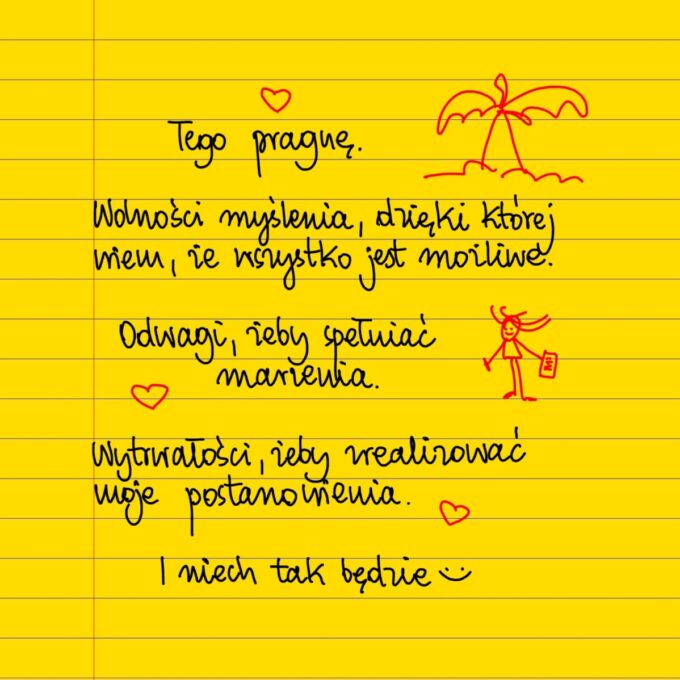 Tego pragnę.
Wolności myślenia, dzięki której
wiem, że wszystko jest możliwe.
Odwagi, żeby spełniać
marzenia.
Wytrwałości, żeby zrealizować
moje postanowienia.
I niech tak będzie